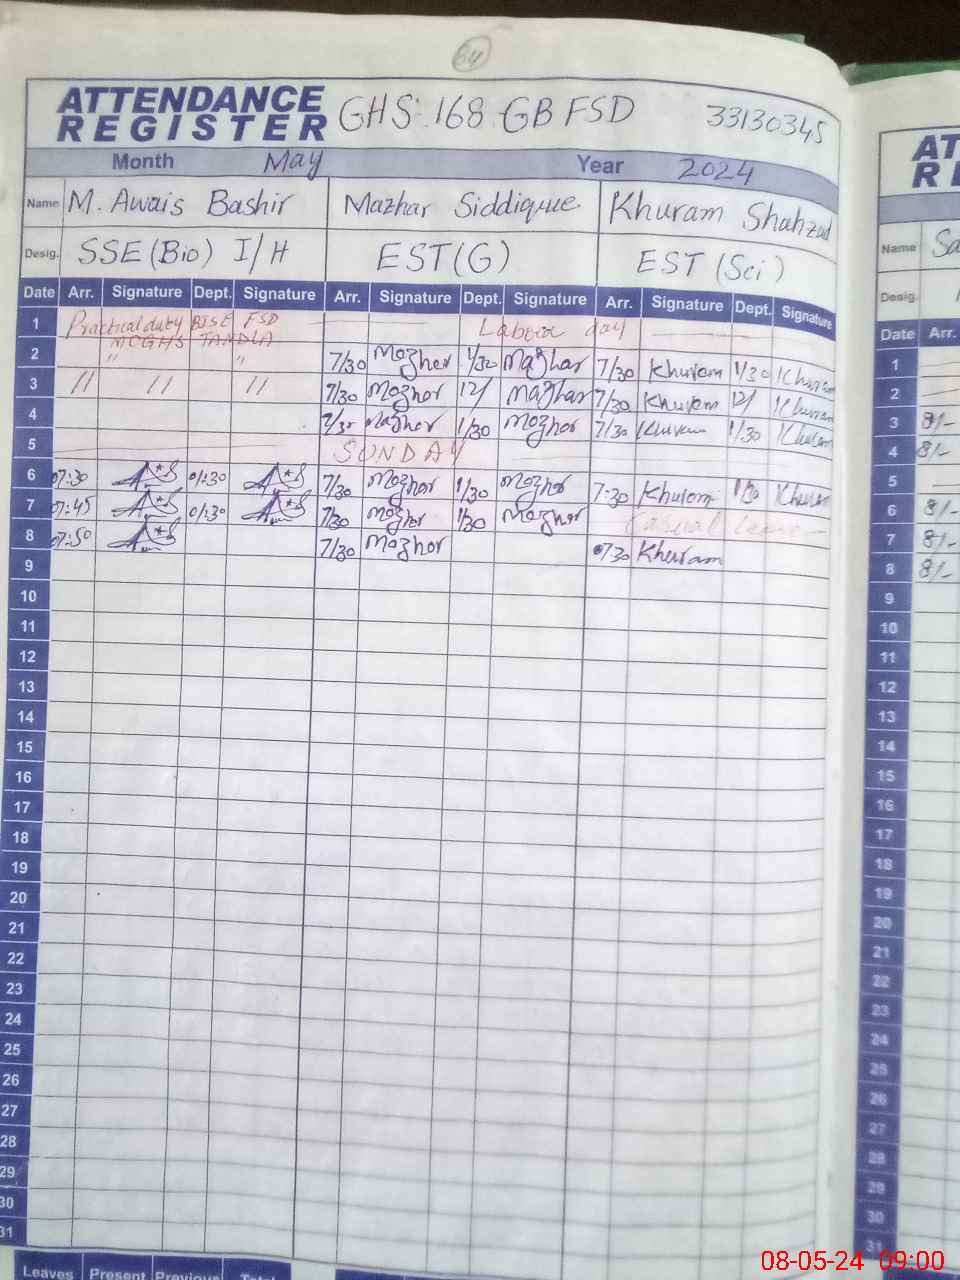 64
ATTENDANCE REGISTER GHS 168 GB FSD 33130345
Month May Year 2024
Name M. Awais Bashir Mazhar Siddique Khuram Shahzad
Desig. SSE (Bio) I/H EST (G) EST (Sci)
Date Arr. Signature Dept. Signature Arr. Signature Dept. Signature Arr. Signature Dept. Signature
1 Practical duty BISE FSD Labour day
MCGHS TANDLA
2 " " 7/30 Mazhar 1/30 Mazhar 7/30 Khuram 1/30 Khuram
3 " " " 7/30 Mazhar 12/ Mazhar 7/30 Khuram 12/ Khuram
4 7/30 Mazhar 1/30 Mazhar 7/30 Khuram 1/30 Khuram
5 SUNDAY
6 07:30 01:30 7/30 Mazhar 1/30 Mazhar 7:30 Khuram 1/30 Khuram
7 07:45 01:30 7/30 Mazhar 1/30 Mazhar Casual Leave
8 07:50 7/30 Mazhar 07/30 Khuram
9
10
11
12
13
14
15
16
17
18
19
20
21
22
23
24
25
26
27
28
29
30
31
Leaves Present Previous Total
AT
RE
Name Sa
Desig.
Date Arr.
1
2
3 8/-
4 8/-
5
6 8/-
7 8/-
8 8/-
9
10
11
12
13
14
15
16
17
18
19
20
21
22
23
24
25
26
27
28
29
30
31
08-05-24 09:00